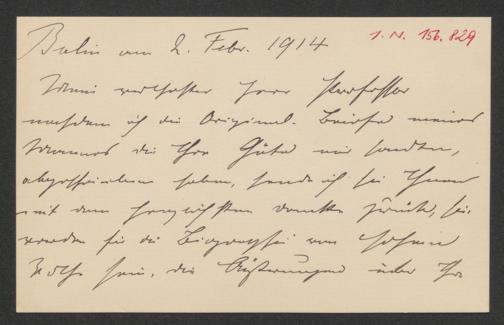 Berlin am 2. Febr. 1914
I. N. 156.829
Mein verehrter Herr Professor
nachdem ich die Original-Briefe meines
Mannes die Ihre Güte mir sandten,
abgeschrieben habe, sende ich sie Ihnen
mit dem herzlichsten Danke zurück, sie
werden für die Biographie von hohem
sein, die Äußerungen über Ihr